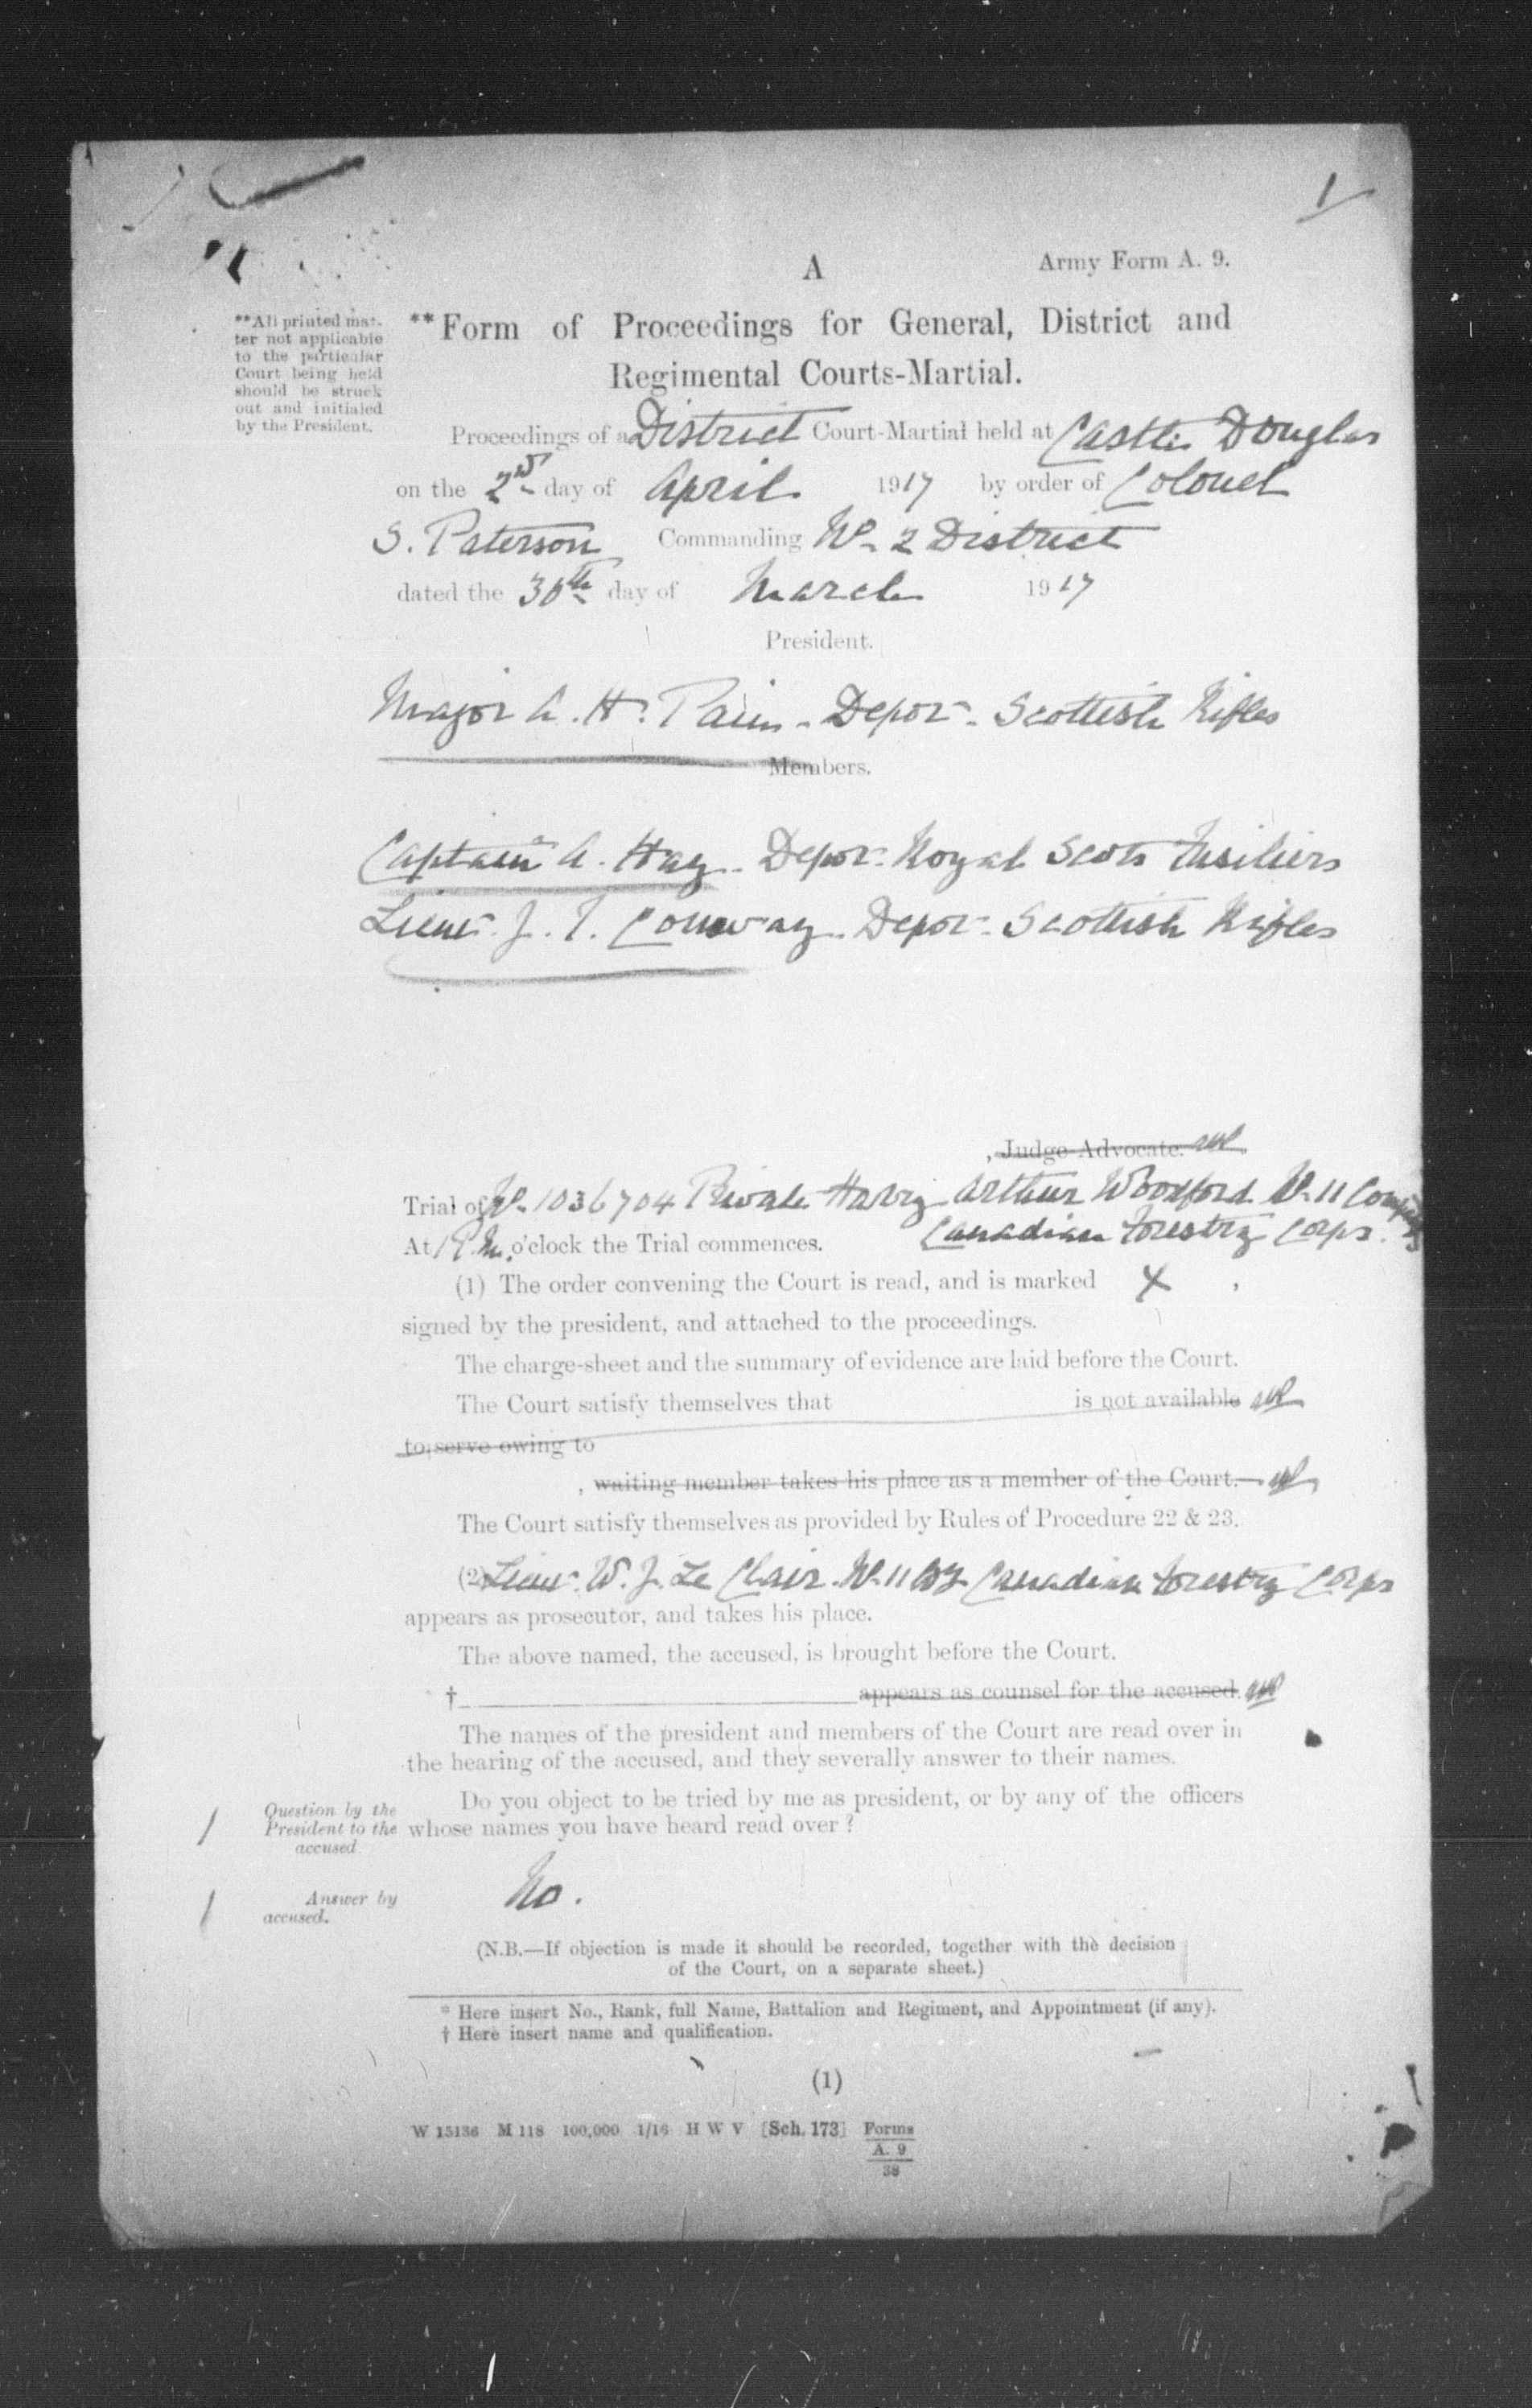 1
A
Army Form A. 9.
**All printed mat-
ter not applicable
to the particular
Court being held
should be struck
out and initialed
by the President.
**Form of Proceedings for General, District and
Regimental Courts-Martial.
Proceedings of a District Court-Martial held at Castle Douglas
on the 2nd day of April 1917 by order of Colonel
S. Paterson Commanding No. 2 District
dated the 30th day of March 1917
President.
Major A. H. Pain - Depot - Scottish Rifles
Members.
Captain A. Hay - Depot - Royal Scots Fusiliers
Lieut. J. T. Conway - Depot - Scottish Rifles
, Judge Advocate.
Trial of No. 1036704 Private Harry Arthur Woodford No. 11 Company
Canadian Forestry Corps.
At 1 P.M. o'clock the Trial commences.
(1) The order convening the Court is read, and is marked X ,
signed by the president, and attached to the proceedings.
The charge-sheet and the summary of evidence are laid before the Court.
The Court satisfy themselves that is not available
to serve owing to
, waiting member takes his place as a member of the Court.—
The Court satisfy themselves as provided by Rules of Procedure 22 & 23.
(2) Lieut. W. J. Le Clair. No. 11 Coy Canadian Forestry Corps
appears as prosecutor, and takes his place.
The above named, the accused, is brought before the Court.
† appears as counsel for the accused.
The names of the president and members of the Court are read over in
the hearing of the accused, and they severally answer to their names.
Question by the
President to the
accused.
Do you object to be tried by me as president, or by any of the officers
whose names you have heard read over ?
Answer by
accused.
No.
(N.B.—If objection is made it should be recorded, together with the decision
of the Court, on a separate sheet.)
* Here insert No., Rank, full Name, Battalion and Regiment, and Appointment (if any).
† Here insert name and qualification.
(1)
W 15136 M 118 100,000 1/16 H W V [Sch. 173] Forms
A. 9
38